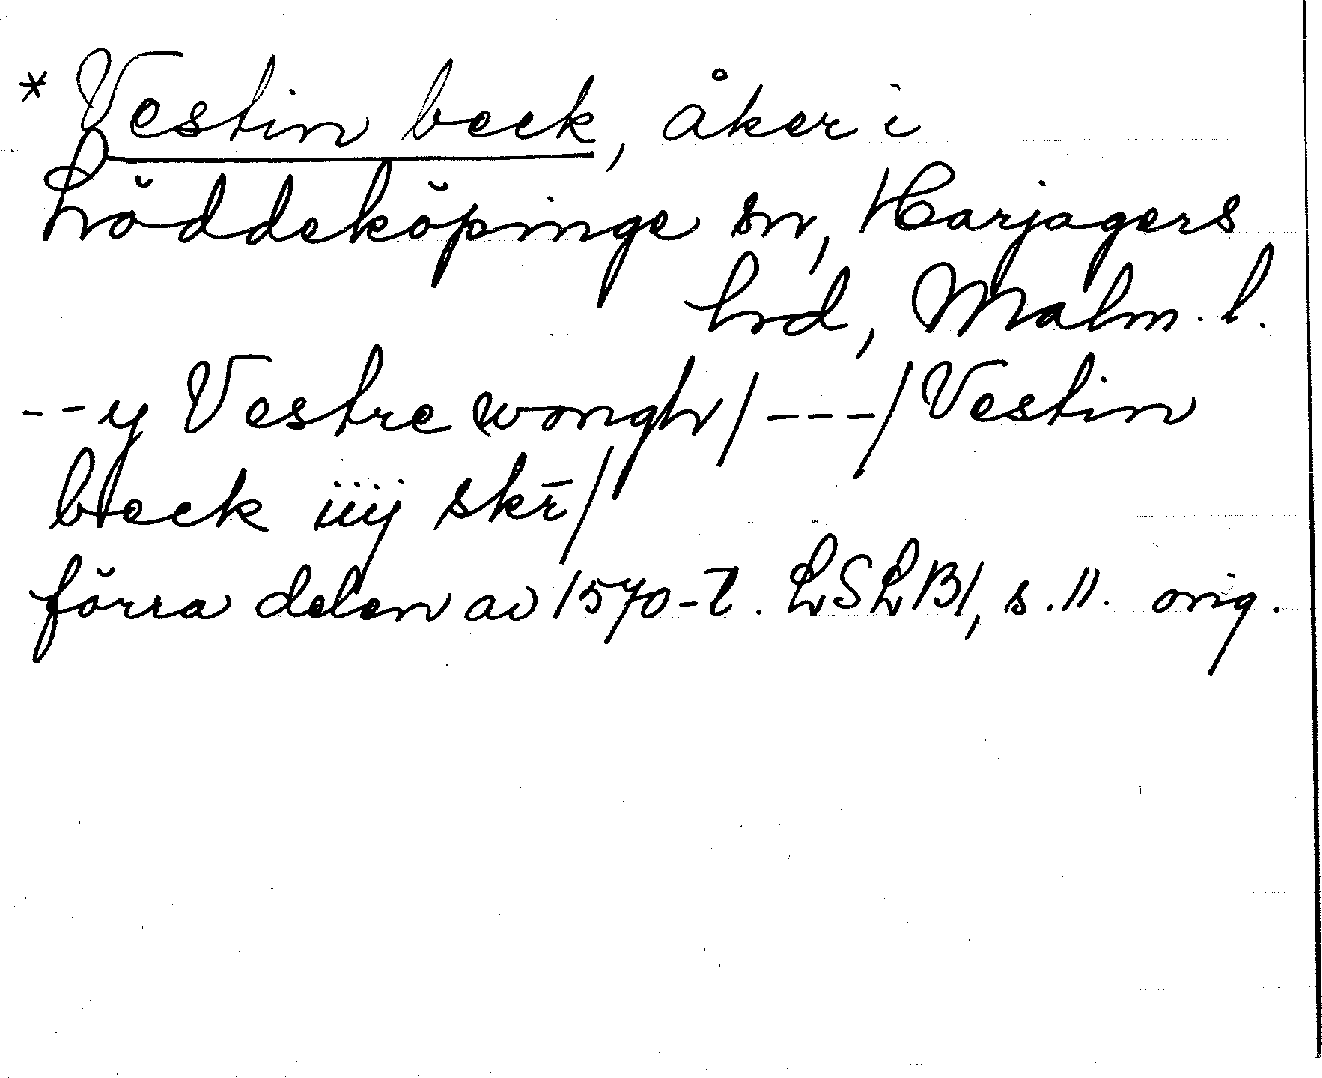 *Vestin beck, åker i
Löddeköpinge sn, Harjagers
hrd, Malm. l.
--y Vestre wongh/---/Vestin
beck iiij skr̄/
förra delen av 1570-t. LSLB1, s. 11. orig.